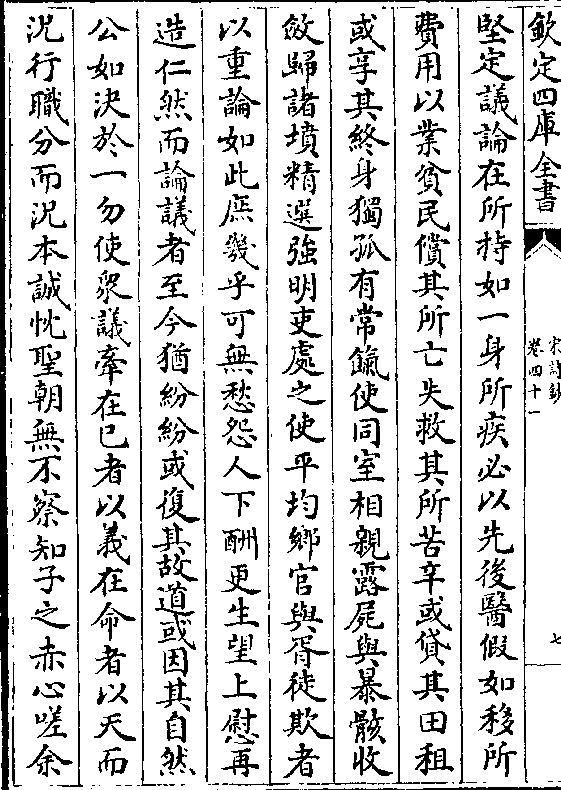 欽定四庫全書
宋詩鈔
卷四十一
七
堅定議論在所持如一身所疾必以先後醫假如移所
費用以業貧民償其所亡失救其所苦辛或貸其田租
或享其終身獨孤有常餼使同室相親露屍與暴骸收
斂歸諸墳精選強明吏處之使平均鄉官與胥徒欺者
以重論如此庶幾乎可無愁怨人下酬更生望上慰再
造仁然而論議者至今猶紛紛或復其故道或因其自然
公如決於一勿使衆議牽在已者以義在命者以天而
況行職分而況本誠忱聖朝無不察知子之赤心嗟余